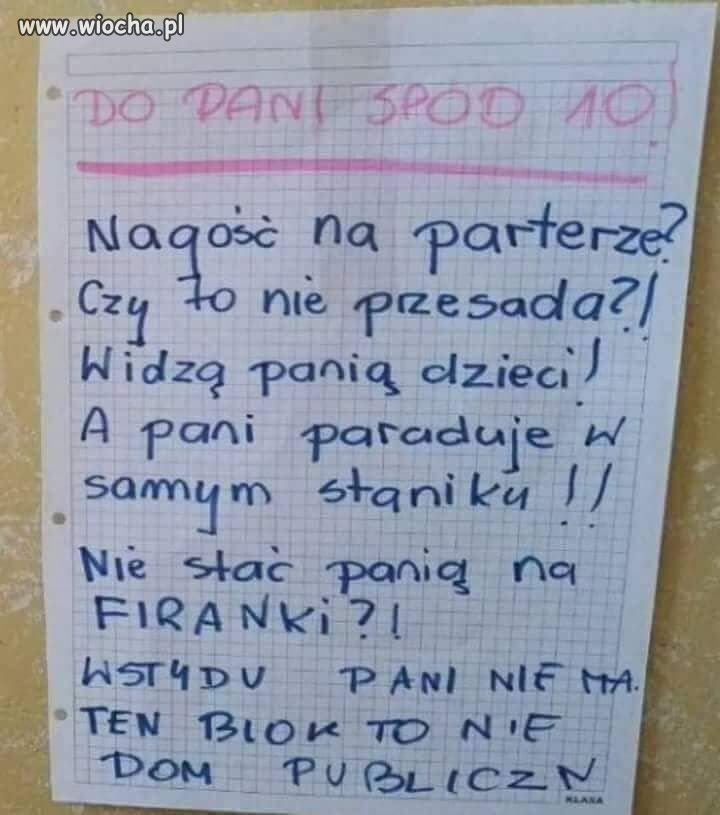 www.wiocha.pl
DO PANI SPOD 10!
Nagość na parterze?
Czy to nie przesada?!
Widzą panią dzieci!
A pani paraduje w
samym staniku!!
Nie stać panią na
FIRANKi?!
WSTYDU PANI NIE MA.
TEN BLOK TO NIE
DOM PUBLICZN
KLASA